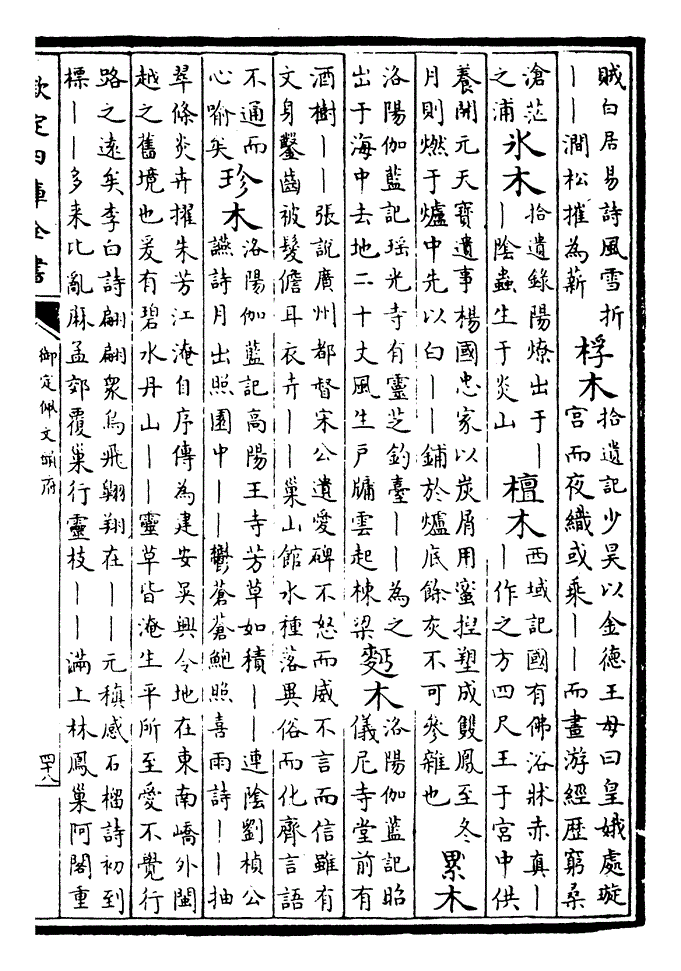 賊白居易詩風雪折
——澗松摧為薪
桴木
拾遺記少昊以金德王母曰皇娥處璇
宮而夜織或乘——而晝游經歴窮桑
滄茫
之浦
氷木
拾遺錄陽燎出于—
—陰蟲生于炎山
檀木
西域記國有佛浴牀赤真—
—作之方四尺王于宮中供
養開元天寶遺事楊國忠家以炭屑用蜜揑塑成雙鳳至冬
月則燃于爐中先以白——鋪於爐底餘灰不可參雜也
累木
洛陽伽藍記瑶光寺有靈芝釣臺——為之
出于海中去地二十丈風生戶牖雲起棟梁
麫木
洛陽伽藍記昭
儀尼寺堂前有
酒樹——張說廣州都督宋公遺愛碑不怒而威不言而信雖有
文身鑿齒被髮儋耳衣卉——巢山館水種落異俗而化齊言語
不通而
心喻矣
珍木
洛陽伽藍記高陽王寺芳草如積——連陰劉楨公
讌詩月出照園中——鬱蒼蒼鮑照喜雨詩——抽
翠條炎卉擢朱芳江淹自序傳為建安吳興令地在東南嶠外閩
越之舊境也爰有碧水丹山——靈草皆淹生平所至愛不覺行
路之遠矣李白詩翩翩衆鳥飛翺翔在——元稹感石榴詩初到
標——多来比亂麻孟郊覆巢行靈枝——滿上林鳳巢阿閣重
欽定四庫全書
御定佩文韻府
四十八